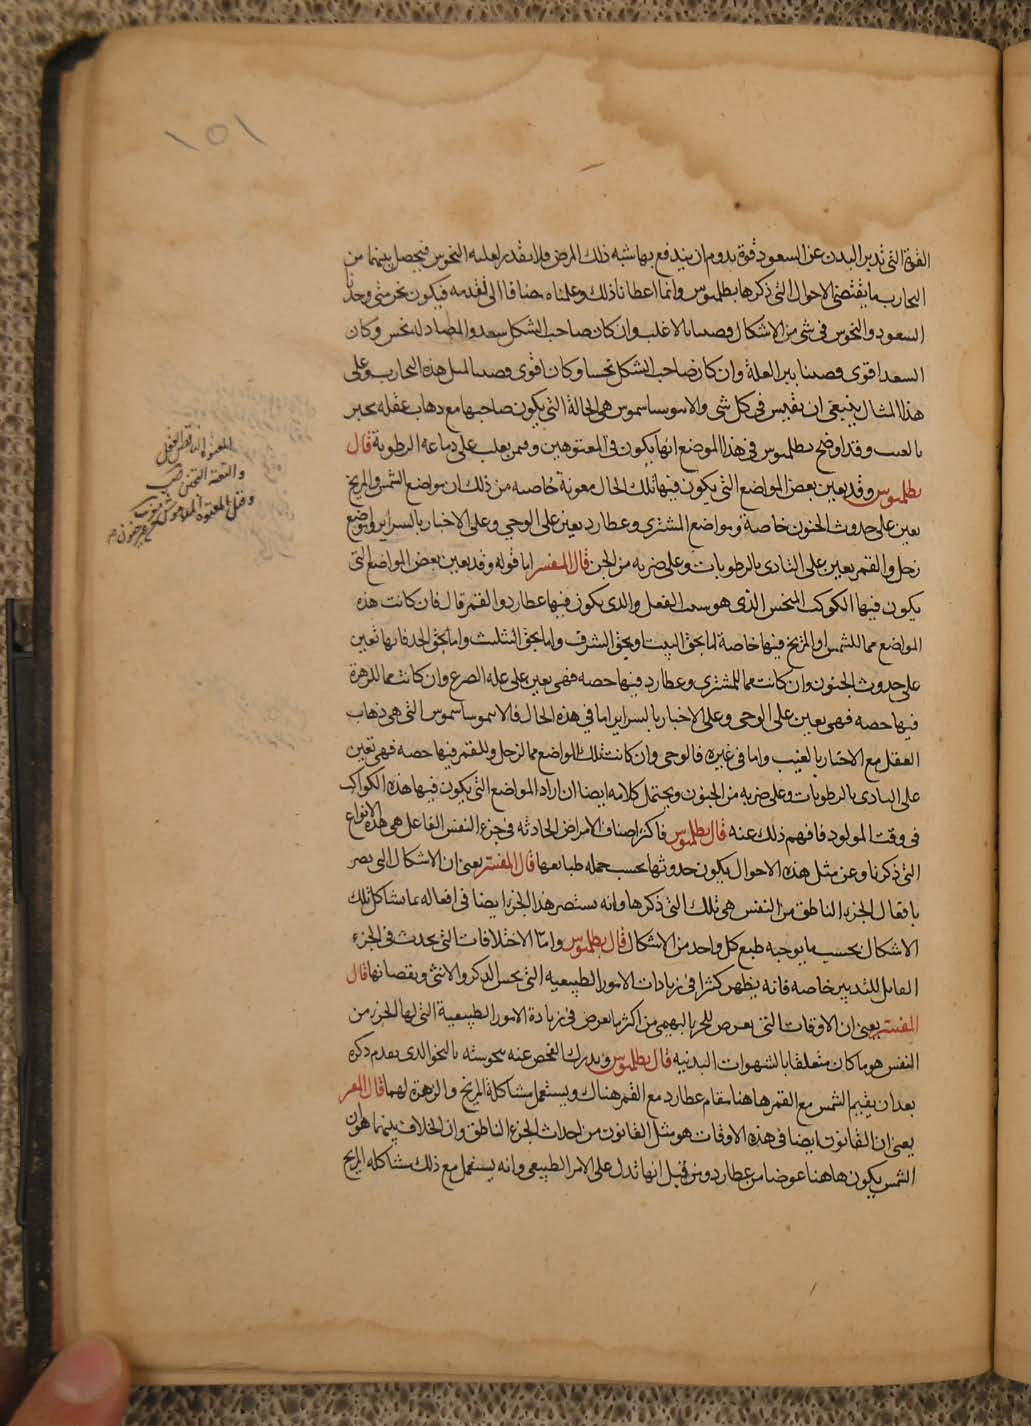 ١٥١
القوة التى تدبر البدن عن السعود قوة يدوم ان يندفع بها شبه ذلك المرض فلا يقدر لغلبة النحوس فيحصل بينهما من
البحارب ما يقتضى الاحوال التى ذكرها بطلميوس وانما اعطانا ذلك وعلمناه مضافا الى تقدمه فيكون نحن متى وجدنا
السعود والنحوس فى شى من الاشكال وقضينا بالاغلب وان كان صاحب الشكل سعد والمضاد له نحس وكان
السعد اقوى قضينا ببرء العلة وان كان صاحب الشكل نحسا وكان اقوى قضينا هذه التجارب وعلى
هذا المثال ينبغى ان يقيس فى كل شى هى الحالة التى يكون صاحبها مع ذهاب عقله يخبر
بالغيب وقد اوضح بطلميوس فى هذا الموضع انها يكون فى المعتوهين وفمن يغلب على دماغه الرطوبة قال
بطلميوس وقد يعين بعض المواضع التى يكون فيها تلك الحال معونة خاصة من ذلك ان مواضع الشمس والمريخ
يعين على حدوث الجنون خاصة ومواضع المشترى وعطارد يعين على الوحى وعلى الاخبار بالسراير ومواضع
زحل والقمر يعين على التاذى بالرطوبات وعلى ضرب من الجن قال المفسر اما قوله وقد يعين بعض المواضع التى
يكون فيها الكوكب المنحس الذى هو سبب الفعل والذى يكون فيها عطارد والقمر قال فان كانت هذه
المواضع مما للشمس او المريخ فيها خاصة اما بحق البيت او بحق الشرف واما بحق المثلث واما بحق الحد فانها تعين
على حدوث الجنون وان كانت مما للمشترى وعطارد فيها حصه فهى يعين على علة الصرع وان كانت مما للزهرة
فيها حصه فهى يعين على الوحى وعلى الاخبار بالسراير اما فى هذه الحال فالاسموسا سموس التى هى ذهاب
العقل مع الاخبار بالغيب واما فى غيره فالوحى وان كانت تلك المواضع مما لزحل وللقمر فيها حصه فهى تعين
على التاذى بالرطوبات وعلى ضرب من الجنون ويحتمل كلامه ايضا ان اراد المواضع التى يكون فيها هذه الكواكب
فى وقت المولود فافهم ذلك عنه قال بطلميوس فاكثر اصناف الامراض الحادثة فى جزء النفس الفاعل هى هذه الانواع
التى ذكرنا وعن مثل هذه الاحوال يكون حدوثها بحسب جملة طبايعها قال المفسر يعنى ان الاشكال التى يضر
بافعال الجزء الناطق من النفس هى تلك التى ذكرها وانه يستضر هذا الجزء ايضا فى افعاله بما شاكل تلك
الاشكال بحسب ما يوجبه طبع كل واحد من الاشكال قال بطلميوس واما الاختلافات التى يحدث فى الجزء
القابل للتدبير خاصه فانه يظهر كثيرا فى زيادات الامور الطبيعيه التى بجنس الذكر والانثى ونقصانها قال
المفسر يعنى ان الاوقات التى يعرض للجزء البهيمى من اكثر ما يعرض فى زيادة الامور الطبيعية التى لها الجزء من
النفس هو ما كان متعلقا بالشهوات البدنيه قال بطلميوس ويدرك الفحص عنه بالنحو الذى يقدم ذكره
بعد ان يقيم الشمس مع القمر هاهنا مقام عطارد مع القمر هناك ويستعمل مشاكلة المريخ والزهرة لهما قال المفسر
يعنى ان القانون ايضا فى هذه الاوقات هو مثل القانون من احداث الجزء الناطق وان الخلاف بينهما هو ان
الشمس يكون هاهنا عوضا من عطارد ومن قبل انها تدل على الامر الطبيعى وانه يستعمل مع ذلك مشاكله المريخ
المعتوه الناقص العقل